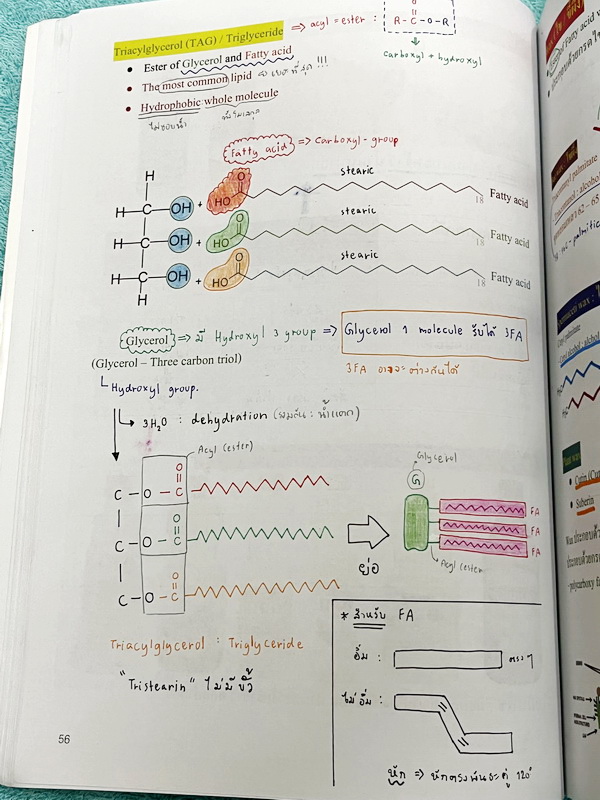 Triacylglycerol (TAG) / Triglyceride => acyl = ester :
O
R - C - O - R
carboxyl + hydroxyl
• Ester of Glycerol and Fatty acid
• The most common lipid !!!
• Hydrophobic whole molecule
ไม่ชอบน้ำ
Fatty acid => Carboxyl - group
H
H C OH + HO O stearic 18 Fatty acid
H C OH + HO O stearic 18 Fatty acid
H C OH + HO O stearic 18 Fatty acid
H
Glycerol => มี Hydroxyl 3 group => Glycerol 1 molecule รับได้ 3FA
(Glycerol – Three carbon triol)
3FA อาจจะต่างกันได้
Hydroxyl group.
3H2O : dehydration (รวมกัน : น้ำแตก)
Acyl (ester)
Glycerol
O
C - O - C
O
C - O - C
O
C - O - C
ย่อ
G
FA
FA
FA
Acyl ester
Triacylglycerol : Triglyceride
"Tristearin" ไม่มีขั้ว
* สำหรับ FA
อิ่ม : ตรงๆ
ไม่อิ่ม :
หัก => หักตรงพันธะคู่ 120°
56